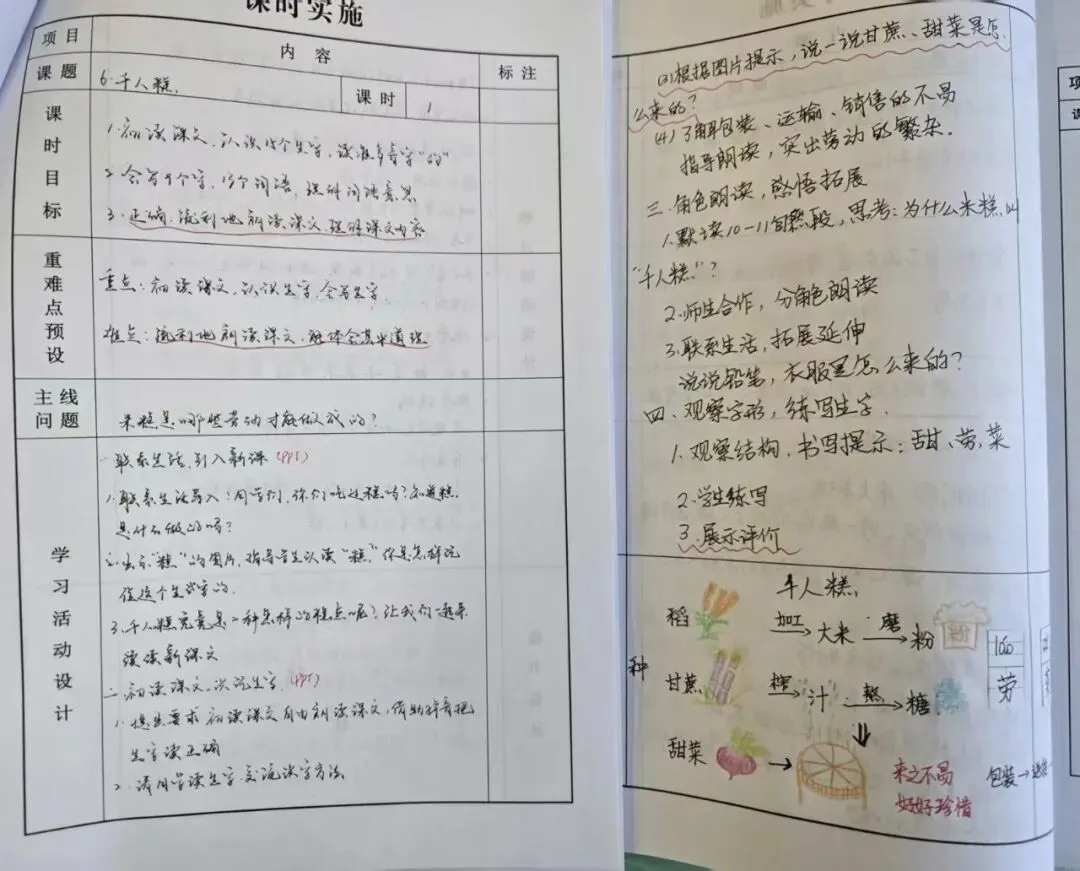 课时实施
项目
内容
标注
课题
6.千人糕.
课时
1
课时目标
1.初读课文,认识15个生字,读准多音字"的"
2.会写9个字,13个词语,理解词语意思
3.正确.流利地朗读课文.理解课文内容
重难点预设
重点:初读课文,认识生字,会写生字
难点:流利地朗读课文,能体会其中道理
主线问题
米糕是哪些劳动才能做成的?
学习活动设计
一.联系生活,引入新课(PPT)
1.联系生活导入:同学们,你们吃过糕吗?知道糕
是什么做的吗?
2.出示"糕"的图片,指导学生认读"糕",你是怎样记
住这个生字的.
3.千人糕究竟是一种怎样的糕点呢?让我们一起来
读读新课文
二.初读课文,识记生字.(PPT)
1.提出要求 初读课文 自由朗读课文,借助拼音把
生字读正确
2.请同学读生字 交流识字方法
(3)根据图片提示,说一说甘蔗、甜菜是怎
么来的?
(4)了解包装、运输、销售的不易
指导朗读,突出劳动的繁杂.
三.角色朗读,感悟拓展
1.默读10-11自然段,思考:为什么米糕叫
"千人糕"?
2.师生合作,分角色朗读
3.联系生活,拓展延伸
说说铅笔,衣服是怎么来的?
四.观察字形,练写生字.
1.观察结构,书写提示:甜、劳、菜
2.学生练写
3.展示评价
千人糕
稻
加工
大米
磨
粉
粉
种
甘蔗
榨
汁
熬
糖
甜菜
100
劳
来之不易
好好珍惜
包装→